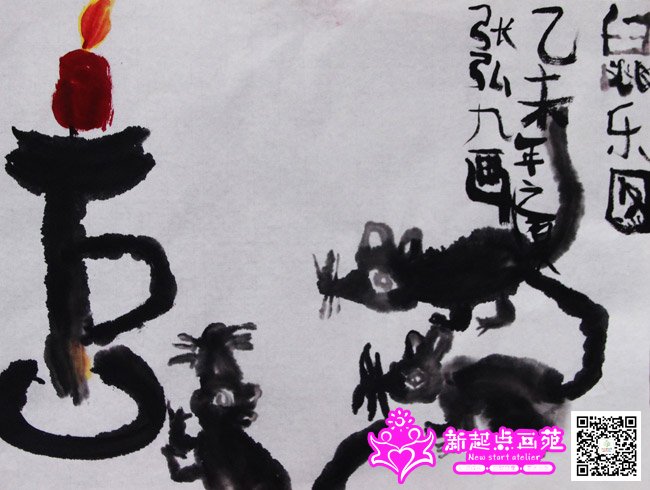 鼠乐图
乙未年之夏
张弘九画
新起点画苑
New start atelier